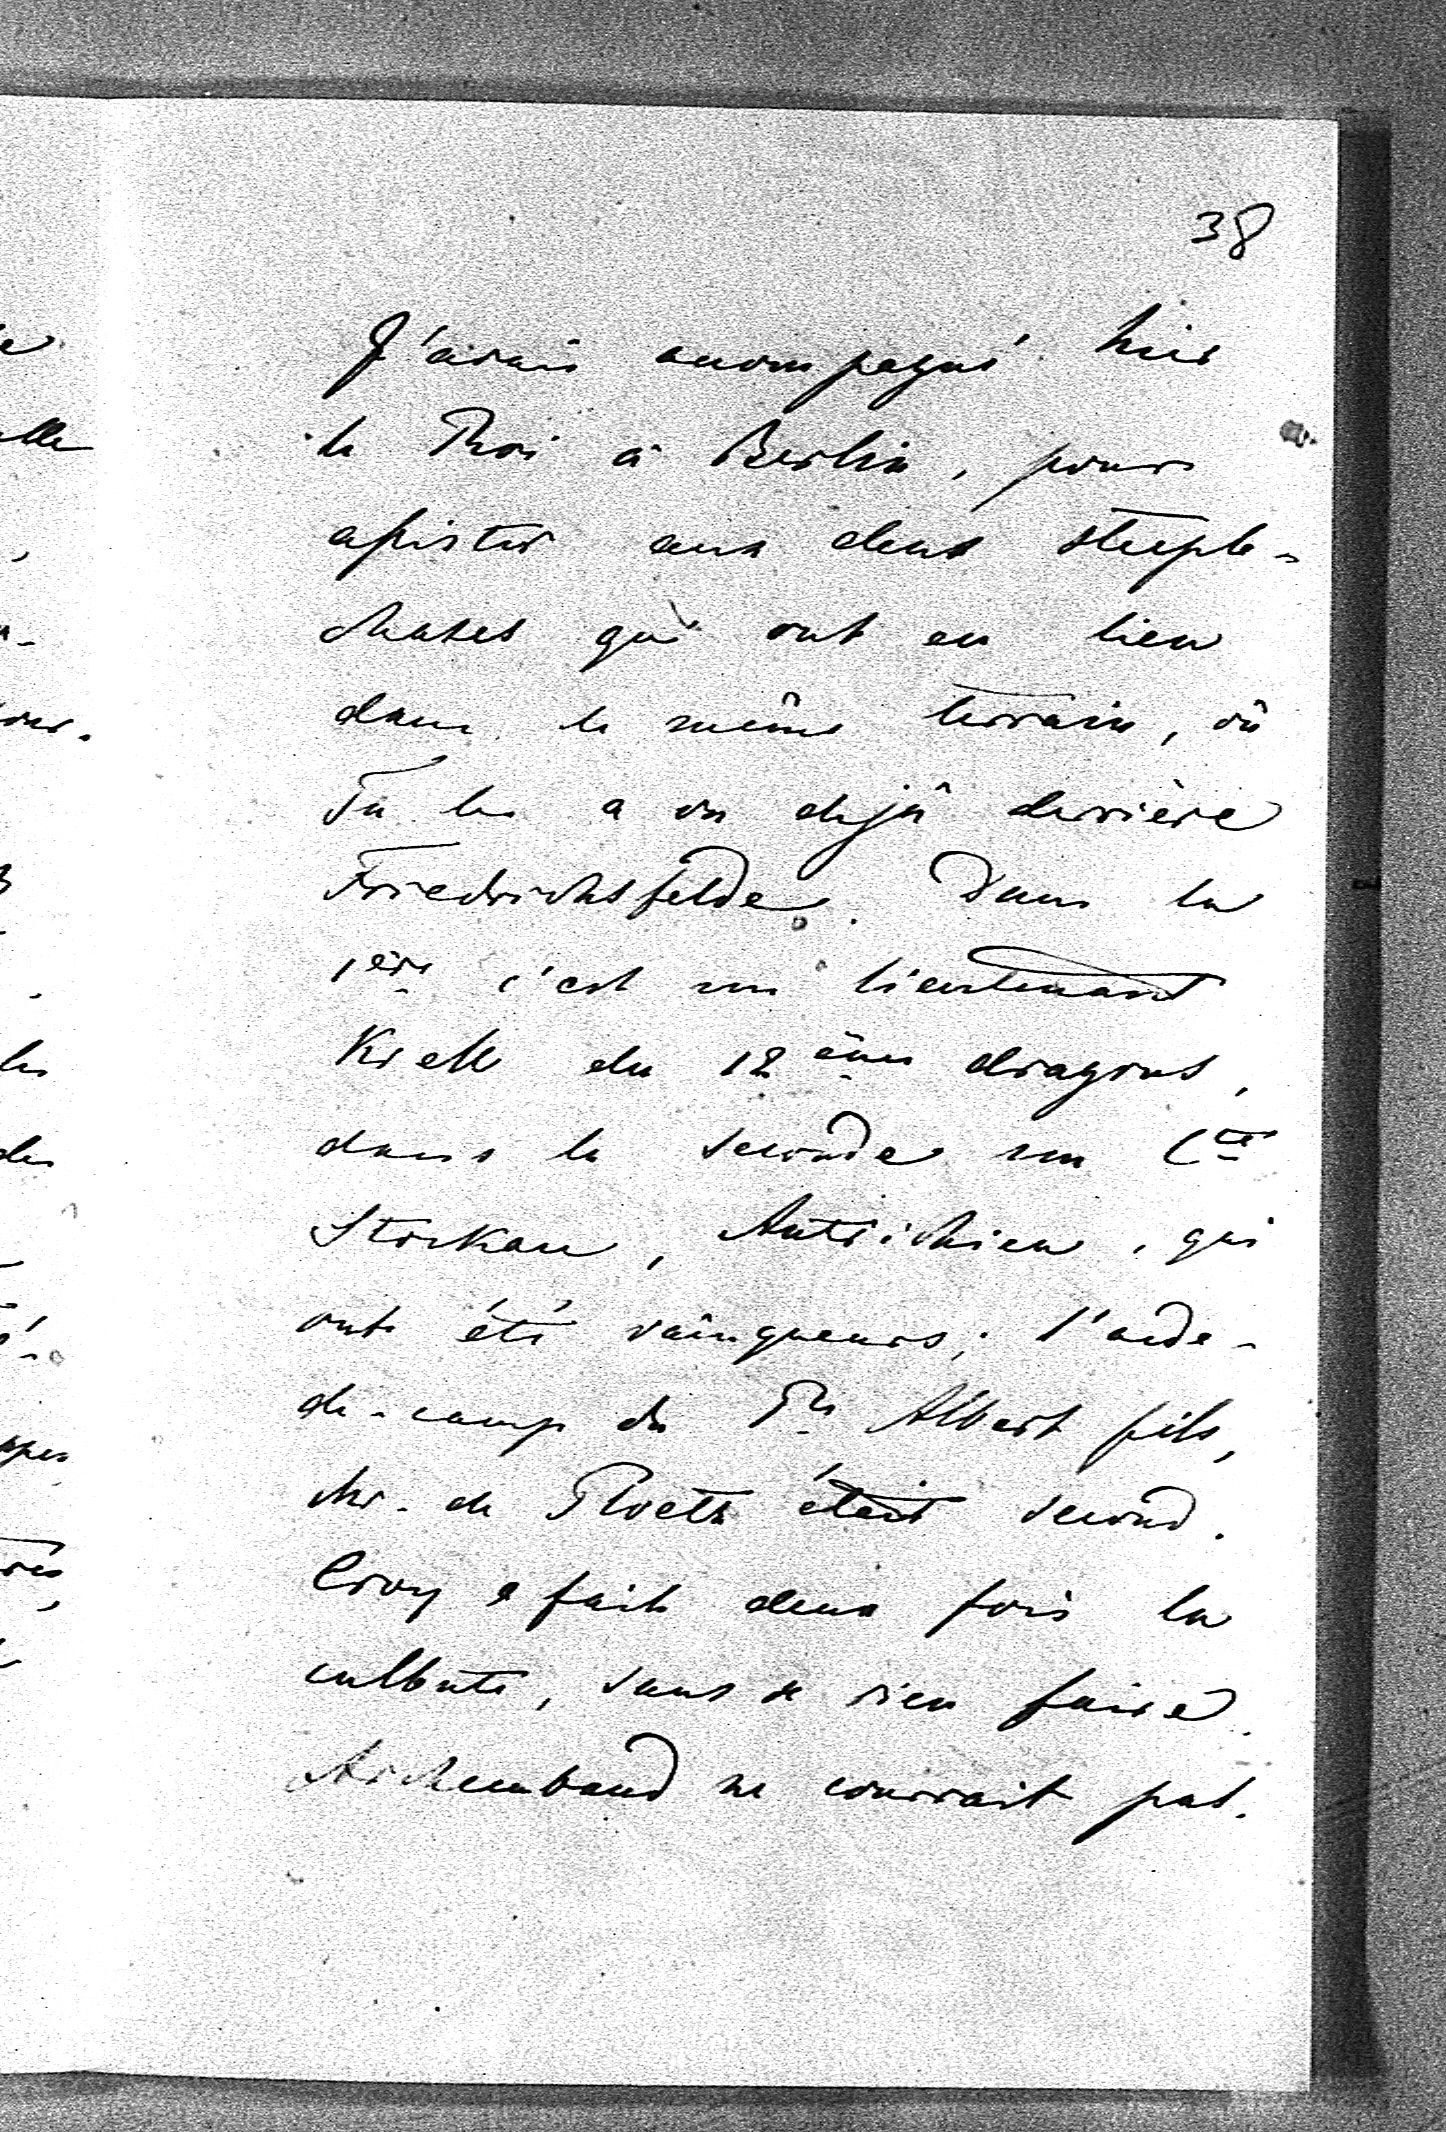 38
J'avais accompagné hier
le Roi à Berlin, pour
assister aux deux steeple-
chases qui ont eu lieu
dans le même terrain, où
Tu les a vu dejà derrière
Friedrichsfelde. Dans la
1ère c'est un lieutenant
Krell du 12ème dragons,
dans la seconde un Cte
Stockau, Autrichien, qui
ont été vainqueurs; l'aide-
de-camp du Pce Albert fils,
Mr. de Ploetz était second.
Croy a fait deux fois la
culbute, sans se rien faire.
Archembaud ne courrait pas.